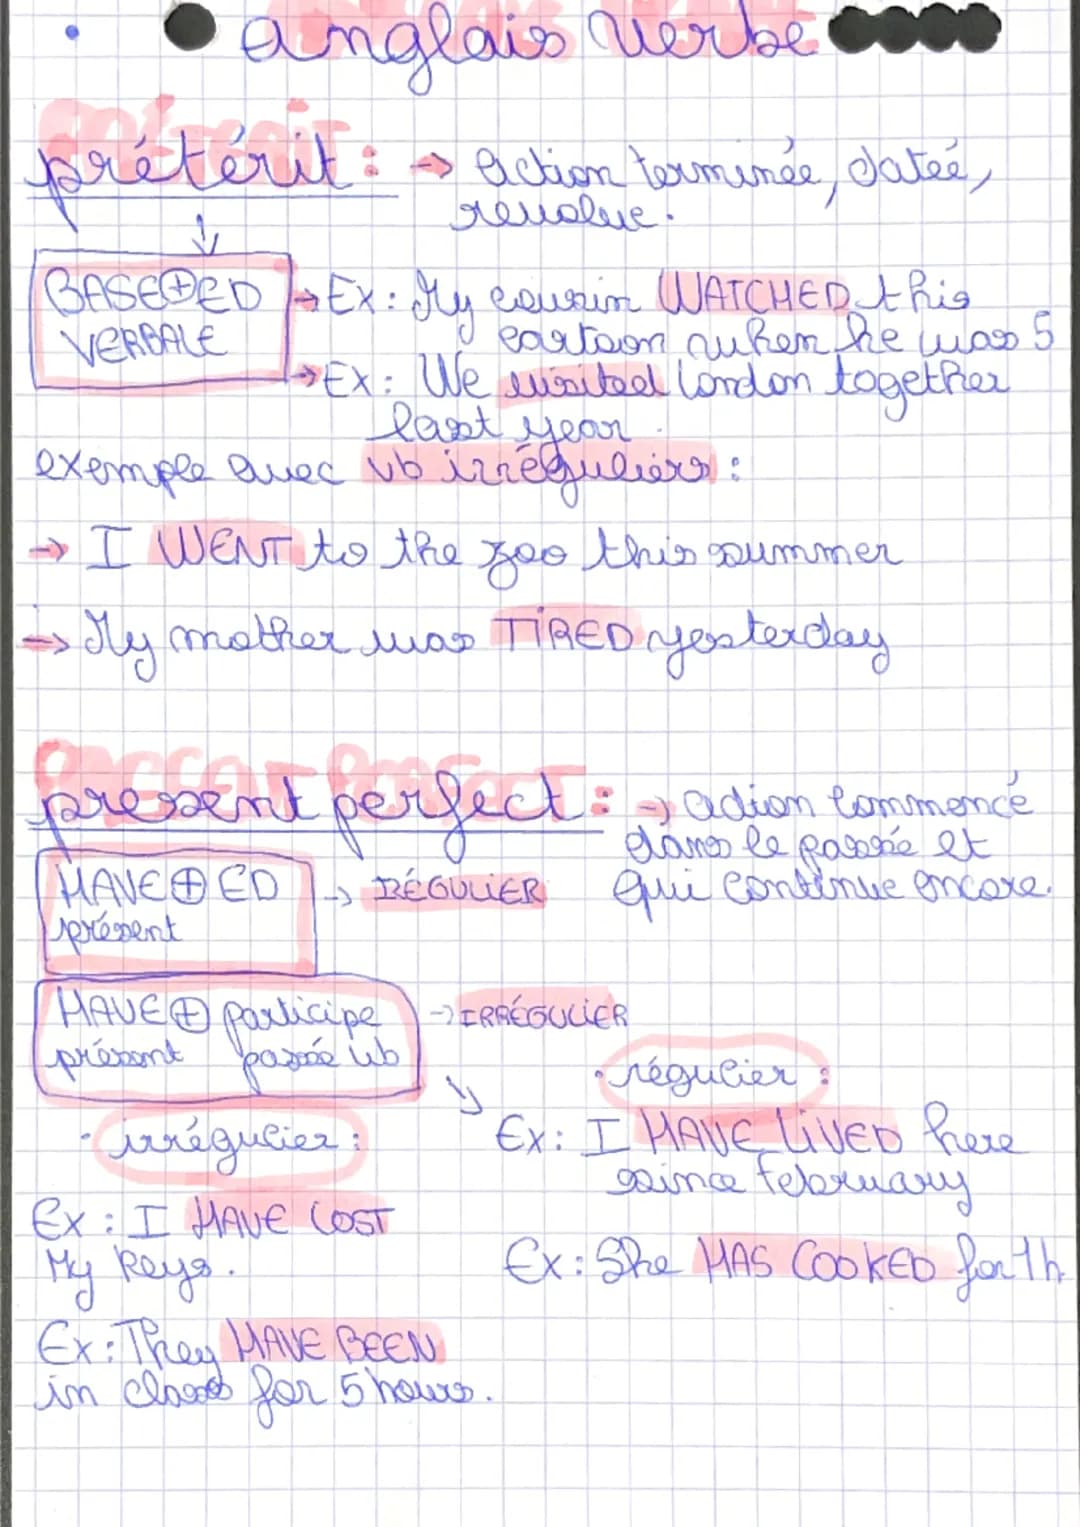 anglais verbe
prétérit : → action terminée, dateé,
revolue.
BASE + ED
VERBALE
→ Ex : My cousin WATCHED this
cartoon when he was 5
→ Ex : We visited London together
last year.
exemple avec vb irréguliérs :
→ I WENT to the zoo this summer
→ My mother was TIRED yesterday
present perfect : → action commencé
dans le passée et
qui continue encore.
HAVE + ED → RÉGULIER
présent
HAVE + participe → IRRÉGULIER
présent passée vb
• régulier :
• irrégulier :
Ex : I HAVE LIVED here
since february
Ex : I HAVE LOST
My keys.
Ex : She HAS COOKED for 1h
Ex : They HAVE BEEN
in class for 5 hours.